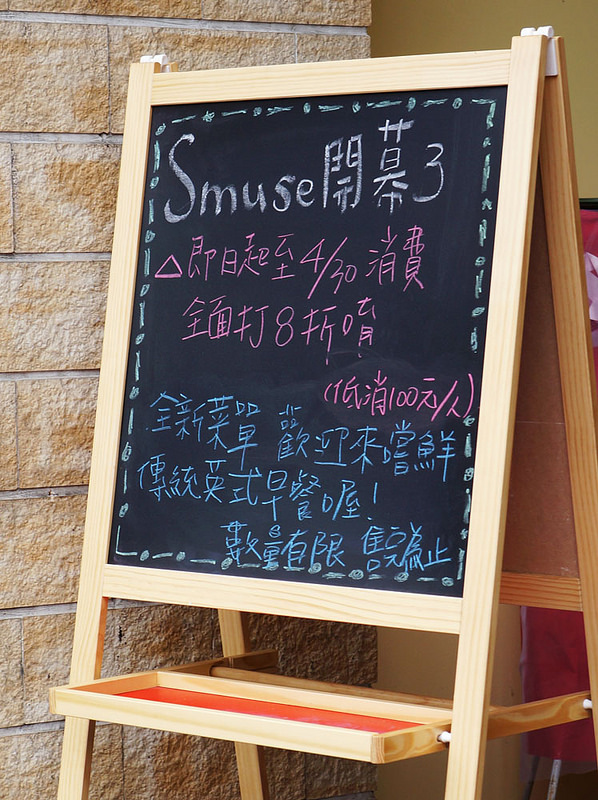 Smuse開幕3
△即日起至4/30消費
全面打8折唷!!
(低消100元/人)
全新菜單 歡迎來嚐鮮
傳統英式早餐喔!
數量有限 售完為止